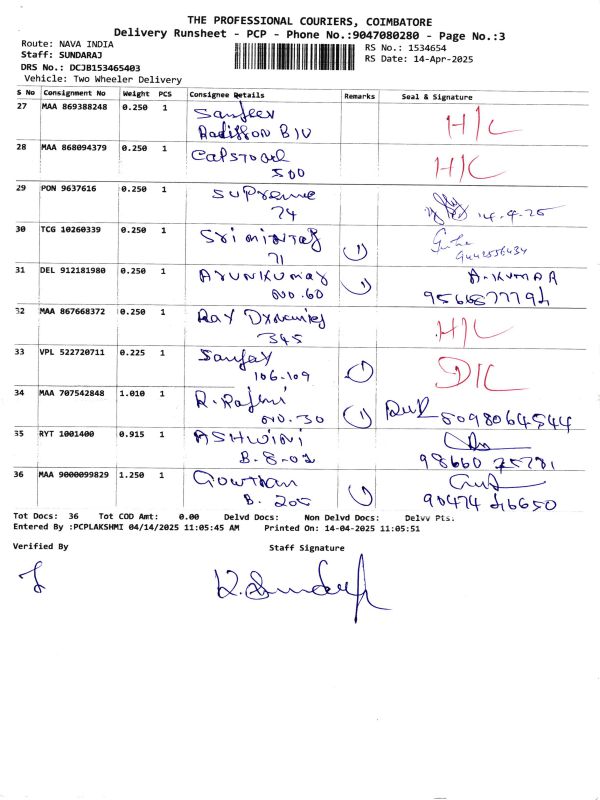 THE PROFESSIONAL COURIERS, COIMBATORE
Delivery Runsheet - PCP - Phone No.:9047080280 - Page No.:3
Route: NAVA INDIA
Staff: SUNDARAJ
RS No.: 1534654
RS Date: 14-Apr-2025
DRS No.: DCJB153465403
Vehicle: Two Wheeler Delivery
S No Consignment No Weight PCS Consignee Details Remarks Seal & Signature
27 MAA 869388248 0.250 1 Sanjeev H/C
Radisson BLU
28 MAA 868094379 0.250 1 H/C
500
29 PON 9637616 0.250 1 Supreme
74 14.4.25
30 TCG 10260339 0.250 1 1
71
31 DEL 912181980 0.250 1 ArunKumar 1 A.KUMAR
NO.60
32 MAA 867668372 0.250 1 Ray Dynamics H/C
345
33 VPL 522720711 0.225 1 Sanjay 1 D/C
106-109
34 MAA 707542848 1.010 1 R. Rajini 1
NO.30
35 RYT 1001400 0.915 1 ASHWINI
B.8-02
36 MAA 9000099829 1.250 1 Gowtham 1
B. 205 90474 46650
Tot Docs: 36 Tot COD Amt: 0.00 Delvd Docs: Non Delvd Docs: Delvv Pts:
Entered By :PCPLAKSHMI 04/14/2025 11:05:45 AM Printed On: 14-04-2025 11:05:51
Verified By Staff Signature